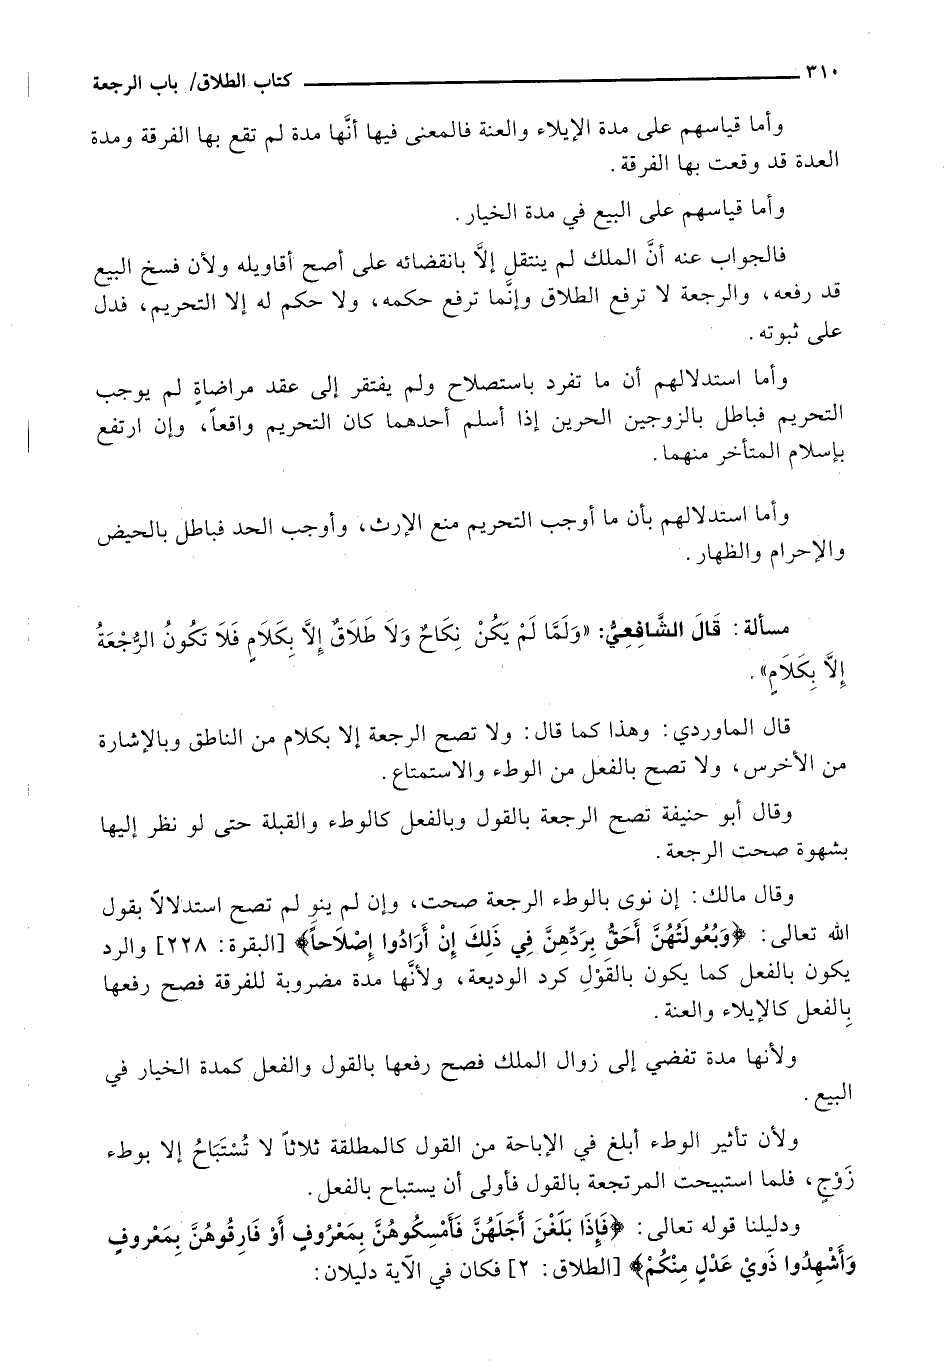 ٣١٠ ــــــــــــــــــــــــــــــــــــــــ كتاب الطلاق/ باب الرجعة
وأما قياسهم على مدة الإيلاء والعنة فالمعنى فيها أنَّها مدة لم تقع بها الفرقة ومدة
العدة قد وقعت بها الفرقة .
وأما قياسهم على البيع في مدة الخيار .
فالجواب عنه أنَّ الملك لم ينتقل إلاَّ بانقضائه على أصح أقاويله ولأن فسخ البيع
قد رفعه، والرجعة لا ترفع الطلاق وإنَّما ترفع حكمه، ولا حكم له إلا التحريم، فدل
على ثبوته .
وأما استدلالهم أن ما تفرد باستصلاح ولم يفتقر إلى عقد مراضاةٍ لم يوجب
التحريم فباطل بالزوجين الحرين إذا أسلم أحدهما كان التحريم واقعاً، وإن ارتفع
بإسلام المتأخر منهما .
وأما استدلالهم بأن ما أوجب التحريم منع الإرث، وأوجب الحد فباطل بالحيض
والإحرام والظهار .
مسألة: قَالَ الشَّافِعِيُّ: «وَلَمَّا لَمْ يَكُنْ نِكَاحٌ وَلَا طَلَاقٌ إِلَّا بِكَلَامٍ فَلَا تَكُونُ الرُّجْعَةُ
إِلَّا بِكَلَامٍ» .
قال الماوردي: وهذا كما قال: ولا تصح الرجعة إلا بكلام من الناطق وبالإشارة
من الأخرس، ولا تصح بالفعل من الوطء والاستمتاع .
وقال أبو حنيفة تصح الرجعة بالقول وبالفعل كالوطء والقبلة حتى لو نظر إليها
بشهوة صحت الرجعة .
وقال مالك: إن نوى بالوطء الرجعة صحت، وإن لم ينو لم تصح استدلالاً بقول
الله تعالى: ﴿وَبُعُولَتُهُنَّ أَحَقُّ بِرَدِّهِنَّ فِي ذَلِكَ إِنْ أَرَادُوا إِصْلَاحاً﴾ [البقرة: ٢٢٨] والرد
يكون بالفعل كما يكون بالقَوْلِ كرد الوديعة، ولأنَّها مدة مضروبة للفرقة فصح رفعها
بِالفعل كالإيلاء والعنة .
ولأنها مدة تفضي إلى زوال الملك فصح رفعها بالقول والفعل كمدة الخيار في
البيع .
ولأن تأثير الوطء أبلغ في الإباحة من القول كالمطلقة ثلاثاً لا تُسْتَبَاحُ إلا بوطء
زَوْجٍ، فلما استبيحت المرتجعة بالقول فأولى أن يستباح بالفعل .
ودليلنا قوله تعالى: ﴿فَإِذَا بَلَغْنَ أَجَلَهُنَّ فَأَمْسِكُوهُنَّ بِمَعْرُوفٍ أَوْ فَارِقُوهُنَّ بِمَعْروفٍ
وَأَشْهِدُوا ذَوِيْ عَدْلٍ مِنْكُمْ﴾ [الطلاق: ٢] فكان في الآية دليلان: